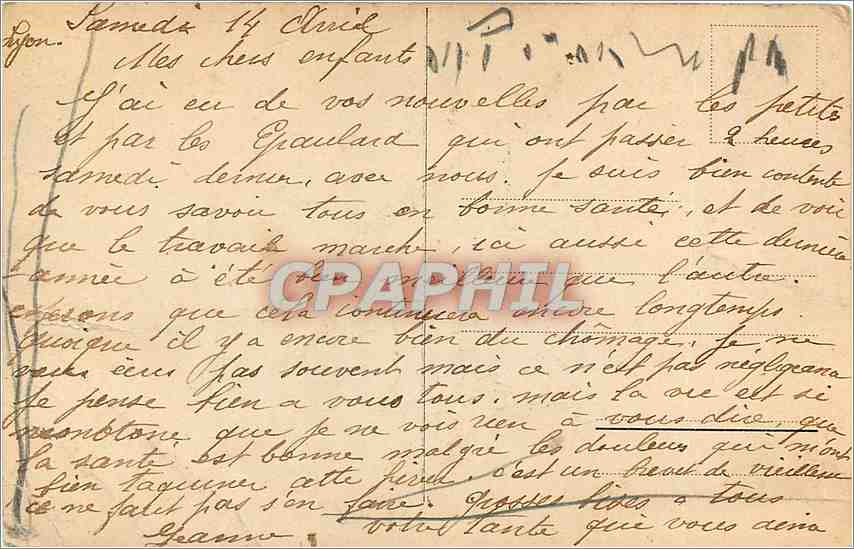 Samedi 14 Avril
Lyon.
Mes chers enfants
J'ai eu de vos nouvelles par les petites
et par les Graulard qui ont passer 2 heures
samedi dernier, avec nous. Je suis bien contente
de vous savoir tous en bonne santé, et de voir
que le travail marche, ici aussi cette dernière
année à été bien meilleure que l'autre.
espérons que cela continuera encore longtemps.
quoique il y a encore bien du chômage, Je ne
vous écris pas souvent mais ce n'est pas négligeance
Je pense bien a vous tous, mais la vie est si
monotone que je ne vois rien à vous dire, que
la santé est bonne malgré les douleurs qui m'ont
bien taquiner cette hiver, c'est un brevet de vieillesse
ce ne faut pas s'en faire. grosses bises a tous
Votre tante qui vous aime
Jeanne
CPAPHIL